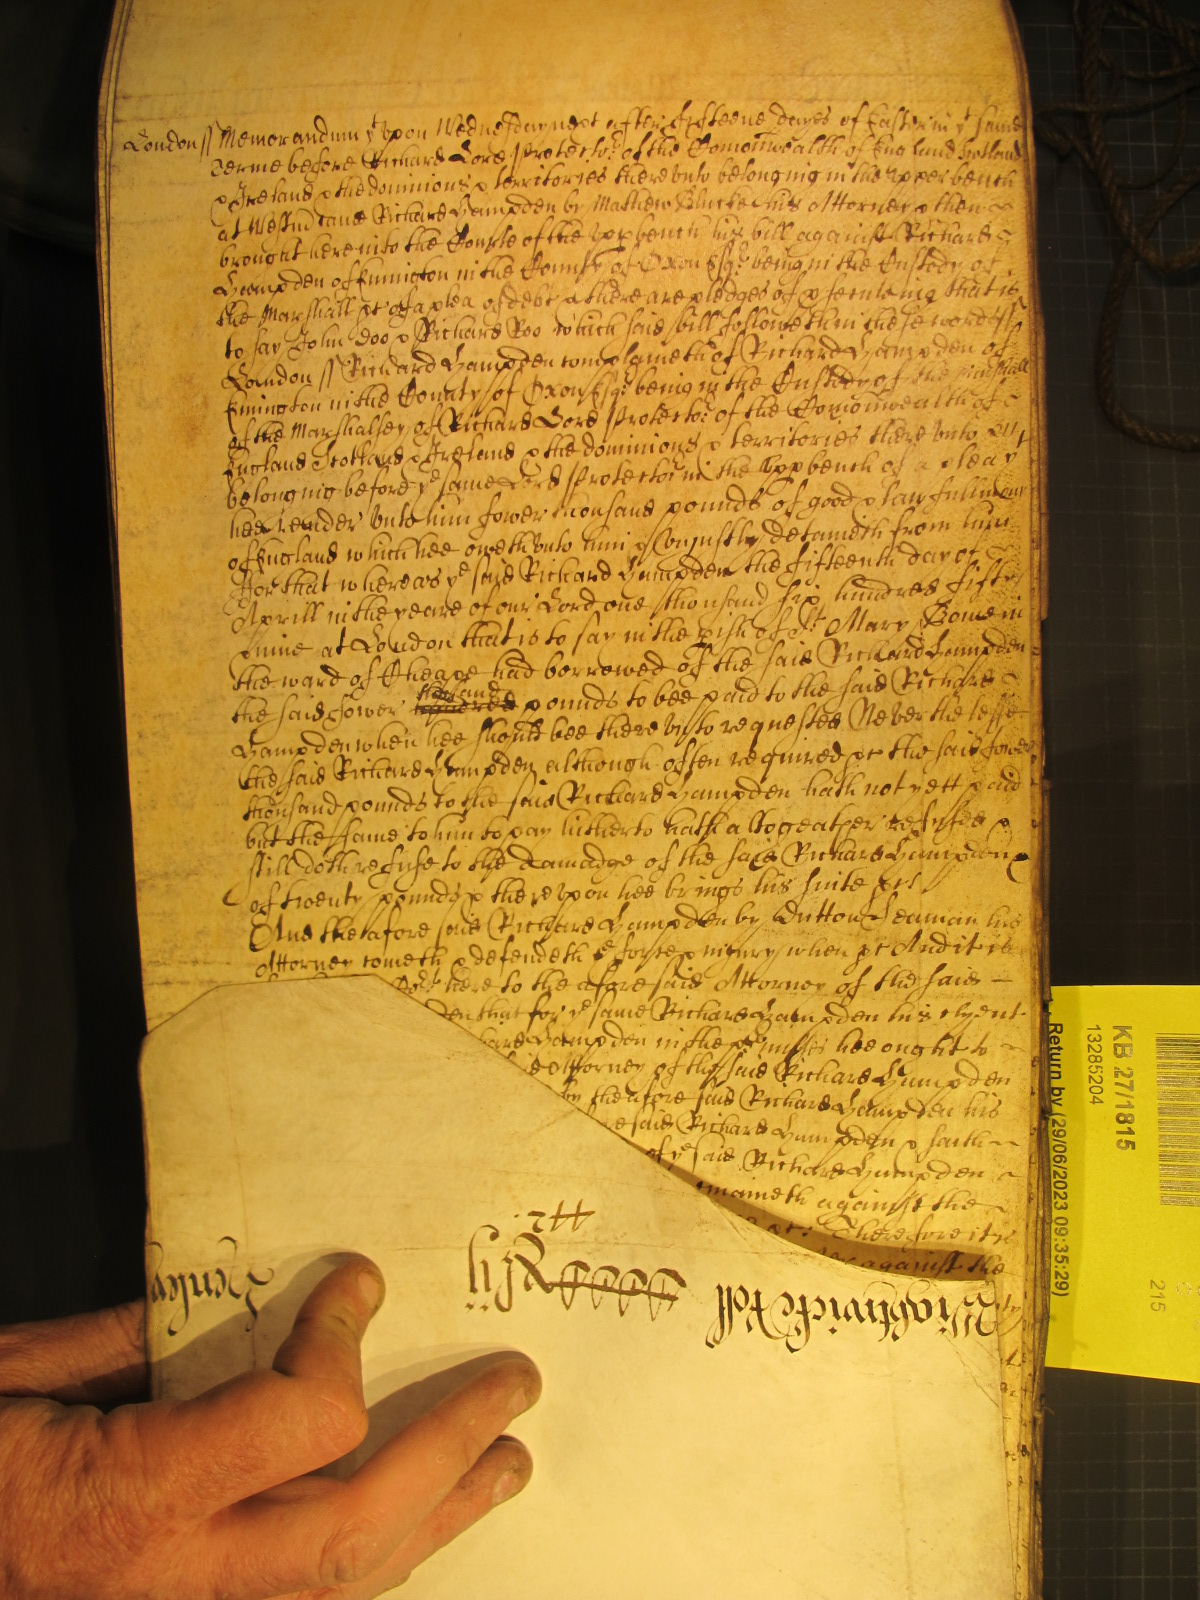 London ss Memorandum yt upon Wednesday next after fifteene dayes of Easter in ye same
Terme before Richard Lord Protector of the Comonwealth of England Scotland
& Ireland & the dominions & territories thereunto belonging in the upper bench
at Westm came Richard Hampden by Mathew his Attorney & then
brought here into the Courte of the upp bench his bill against Richard
Hampden of Emington in the County of Oxon Esqr being in the Custody of
the Marshall &c of a plea of debt & there are pledges of psecuting that is
to say John Doo & Richard Roo which said bill followeth in these words ss
London ss Richard Hampden complaineth of Richard Hampden of
Emington in the County of Oxon Esqr being in the Custody of the Marshall
of the Marshalsey of Richard Lord Protector of the Comonwealth of
England Scotland & Ireland & the dominions & territories there unto
belonging before ye same Lord Protector in the Upp bench of a plea yt
hee render unto him fower thousand pounds of good & lawfull mony
of England which hee oweth unto him & unjustly detaineth from him
For that whereas ye said Richard Hampden the fifteenth day of
Aprill in the yeare of our Lord one thousand six hundred fifty
nine at London that is to say in the pish of St Mary Bowe in
the ward of Cheape had borrowed of the said Richard Hampden
the said fower thousand pounds to bee paid to the said Richard
Hampden when hee should bee there unto requested Neverthelesse
the said Richard Hampden although often required &c the said fower
thousand pounds to the said Richard Hampden hath not yett paid
but the same to him to pay hitherto hath altogeather refused &
still doth refuse to the damadge of the said Richard Hampden
of twenty pounds & thereupon hee brings his suite &c
And the afore said Richard Hampden by Dutton Seaman his
Attorney cometh & defendeth ye force & injury when &c And it is
here to the aforesaid Attorney of the said
den that for ye same Richard Hampden his clyent
hard Hampden in the pmisses hee ought to
Attorney of the said Richard Hampden
by the afore said Richard Hampden his
said Richard Hampden & saith
of ye said Richard Hampden
maineth against the
&c Therefore it is
against the
Wightwicke Roll
442
Henley
KB 27/1815
13285204
Return by (29/06/2023 09:35:29)
215